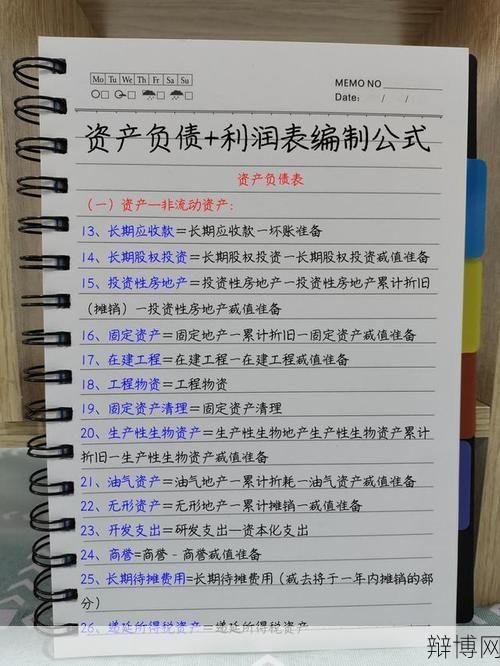 Mo Tu We Th Fr Sa Su
MEMO NO
Date: / /
资产负债+利润表编制公式
资产负债表
(一)资产—非流动资产:
13、长期应收款=长期应收款—坏账准备
14、长期股权投资=长期股权投资—长期股权投资减值准备
15、投资性房地产=投资性房地产—投资性房地产累计折旧
(摊销)—投资性房地产减值准备
16、固定资产=固定地产—累计折旧—固定资产减值准备
17、在建工程=在建工程—在建工程减值准备
18、工程物资=工程物资
19、固定资产清理=固定资产清理
20、生产性生物资产=生产性生物地产生产性生物资产累计
折旧—生产性生物资产减值准备
21、油气资产=油气地产—累计折耗—油气资产减值准备
22、无形资产=无形地产—累计摊销—减值准备
23、开发支出=研发支出—资本化支出
24、商誉=商誉-商誉减值准备
25、长期待摊费用=长期待摊费用(减去将于一年内摊销的部
分)
26、递延所得税资产=递延所得税资产
辩博网